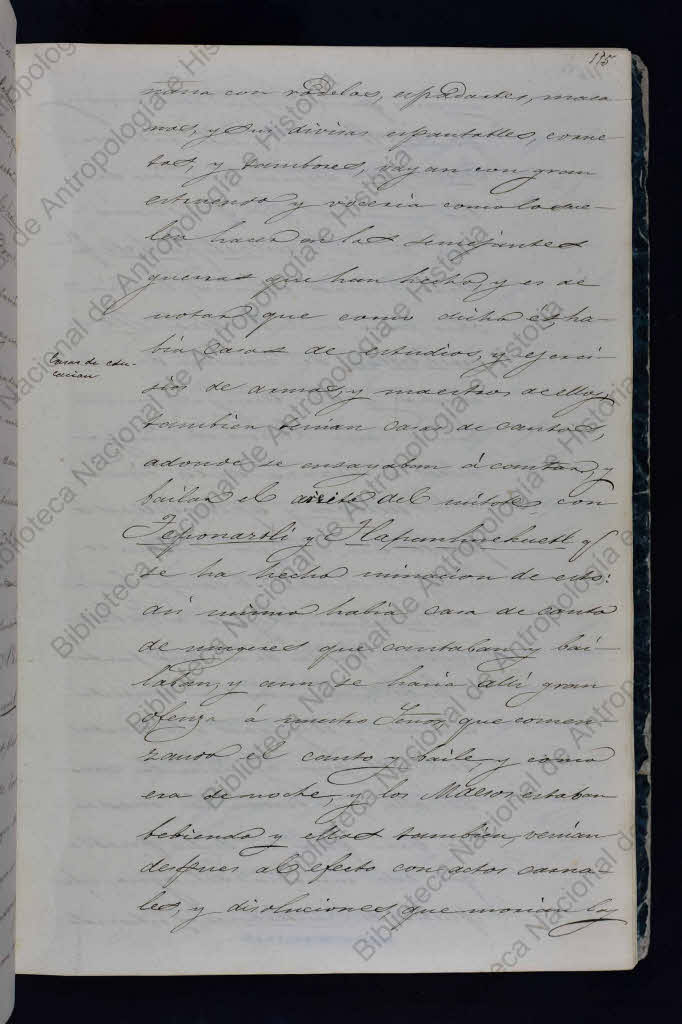 175
nana con rodelas, espadartes, maca-
nas, y sus divisas espantables, corne-
tas, y tambores, vayan con gran
estruendo y voceria como lo sue-
len hacer en las semejantes
guerras que han hecho, y es de
notar que como dicho és, ha-
bia casas de estudios, y ejerci-
Casas de edu-
cacion
sios de armas, y maestros de ellos
tambien tenian casas de cantos,
adonde se ensayaban á cantar, y
bailar el areito del mitote con
Teponaztli y Tlapanhuehuetl q^e
se ha hecho mincion de esto:
asi mismo habia casa de canto
de mugeres que cantaban y bai-
laban, y aun se hacia allí gran
ofenza á nuestro Señor, que comen-
zando el canto y baile, y como
era de noche, y los Maesos estaban
bebiendo y ellas tambien, venian
despues al efecto con actos carna-
les, y disoluciones, que morian
Biblioteca Nacional de Antropología e Historia